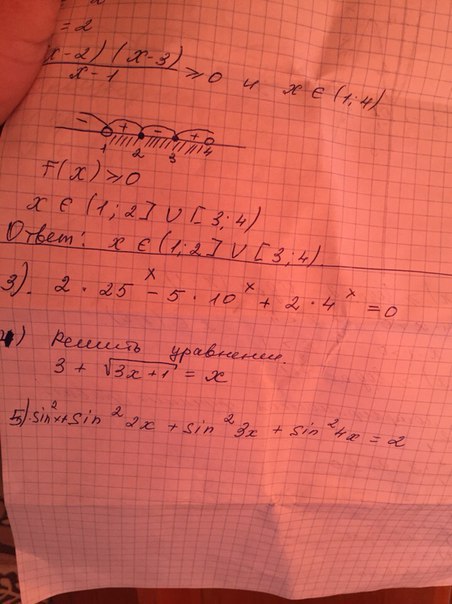 = 2
(x-2)(x-3)
x-1 ≥ 0 и x ∈ (1; 4)
- + - +
1 2 3 4
F(x) ≥ 0
x ∈ (1; 2] ∪ [3; 4)
Ответ: x ∈ (1; 2] ∪ [3; 4)
3). 2 · 25^x - 5 · 10^x + 2 · 4^x = 0
4) Решить уравнение.
3 + √(3x+1) = x
5) sin²x + sin²2x + sin²3x + sin²4x = 2